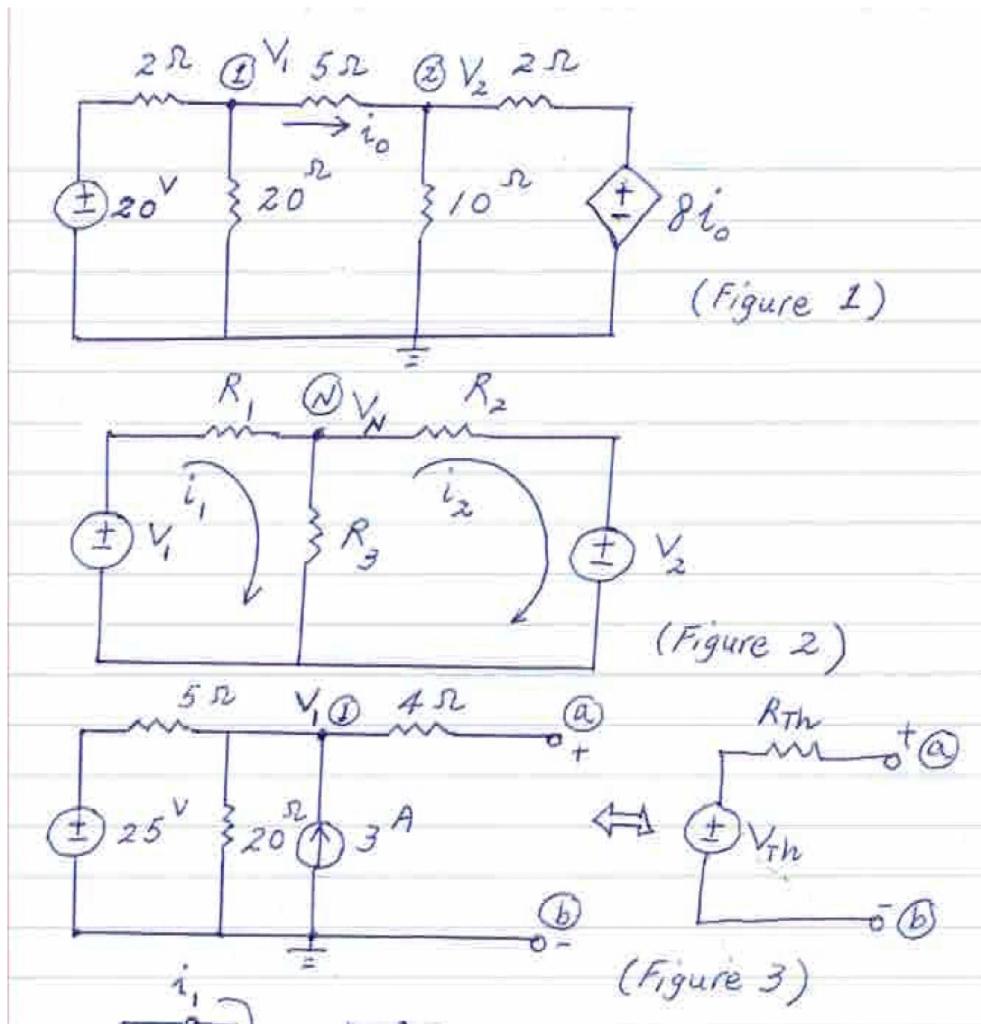 2Ω ① V₁ 5Ω ② V₂ 2Ω
i₀
± 20V 20Ω 10Ω + - 8i₀
(Figure 1)
R₁ Ⓝ V_N R₂
i₁ i₂
± V₁ R₃ ± V₂
(Figure 2)
5Ω V₁ ① 4Ω ⓐ R_Th + ⓐ
+
± 25V 20Ω 3A ⇔ ± V_Th
ⓑ - ⓑ
-
(Figure 3)
i₁